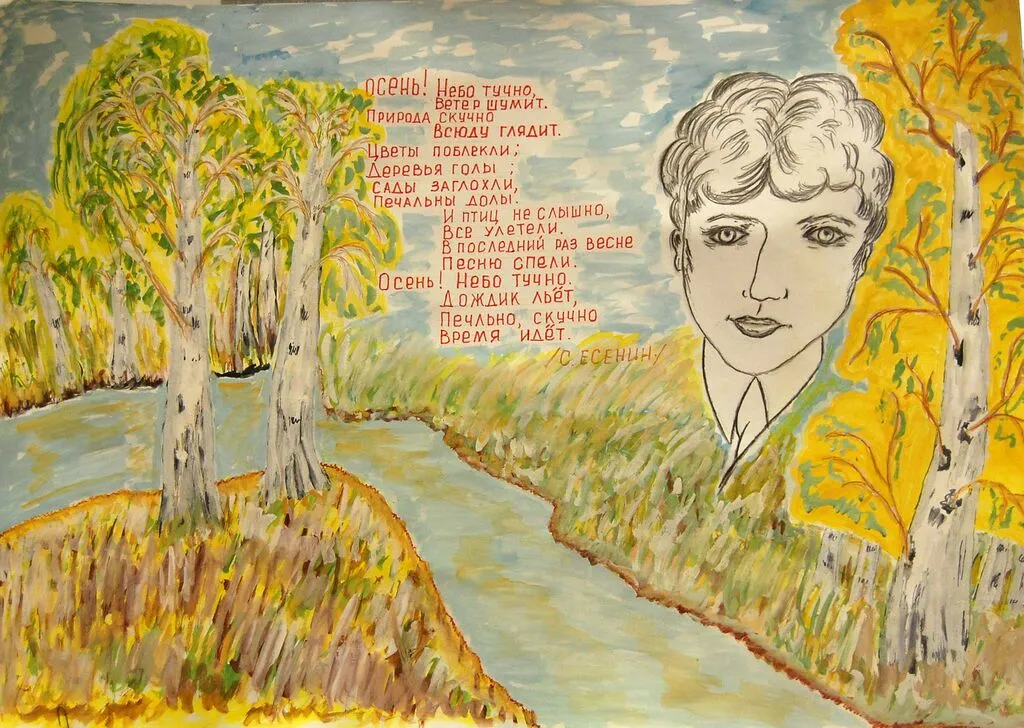 Осень! Небо тучно,
Ветер шумит.
Природа скучно
Всюду глядит.
Цветы поблекли;
Деревья голы;
Сады заглохли,
Печальны долы.
И птиц не слышно,
Все улетели.
В последний раз весне
Песню спели.
Осень! Небо тучно.
Дождик льёт,
Печльно, скучно
Время идёт.
/С. Есенин/